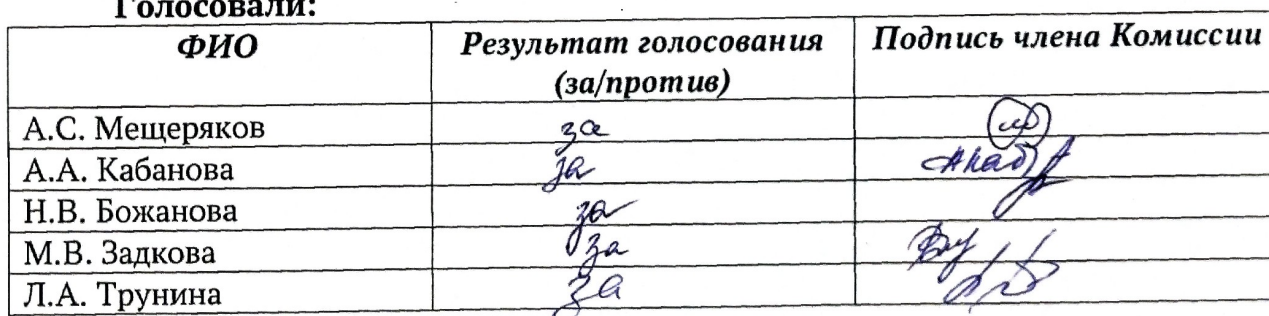 Голосовали:
ФИО Результат голосования (за/против) Подпись члена Комиссии
А.С. Мещеряков за
А.А. Кабанова за
Н.В. Божанова за
М.В. Задкова за
Л.А. Трунина за